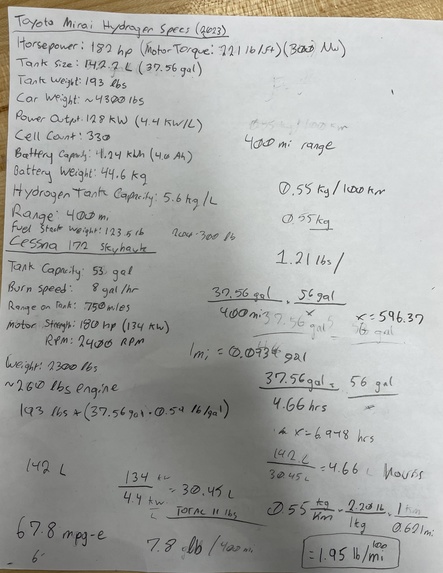 Toyota Mirai Hydrogen Specs (2023)
Horsepower: 182 hp (Motor Torque: 221 lb/ft) (300 Nm)
Tank Size: 142.2 L (37.56 gal)
Tank Weight: 193 lbs
Car Weight: ~4300 lbs
Power Output: 128 KW (4.4 KW/L)
Cell Count: 330
400 mi range
Battery Capacity: 1.24 KWh (4.0 Ah)
Battery Weight: 44.6 kg
Hydrogen Tank Capacity: 5.6 kg/L
0.55 kg/100 Km
Range: 400 mi
0.55 kg
Fuel Stack Weight: 123.5 lb
200-300 lb
Cessna 172 Skyhawk
1.21 lbs/
Tank Capacity: 53 gal
Burn Speed: 8 gal/hr
37.56 gal 56 gal
Range on Tank: 750 miles
400 mi x x = 596.37
37.56 gal 56 gal
Motor Strength: 180 hp (134 KW)
RPM: 2400 RPM
1 mi = 0.0939 gal
Weight: 2300 lbs
37.56 gal = 56 gal
~260 lbs engine
4.66 hrs
193 lbs + (37.56 gal · 0.59 lb/gal)
x = 6.948 hrs
142 L
142 L
30.45 L = 4.66 Hours
134 KW
4.4 KW/L = 30.45 L
Total 11 lbs
0.55 kg/Km · 2.20 lb/1 kg · 1 km/0.621 mi
67.8 mpg-e
7.8 lb/400 mi
= 1.95 lb/100 mi